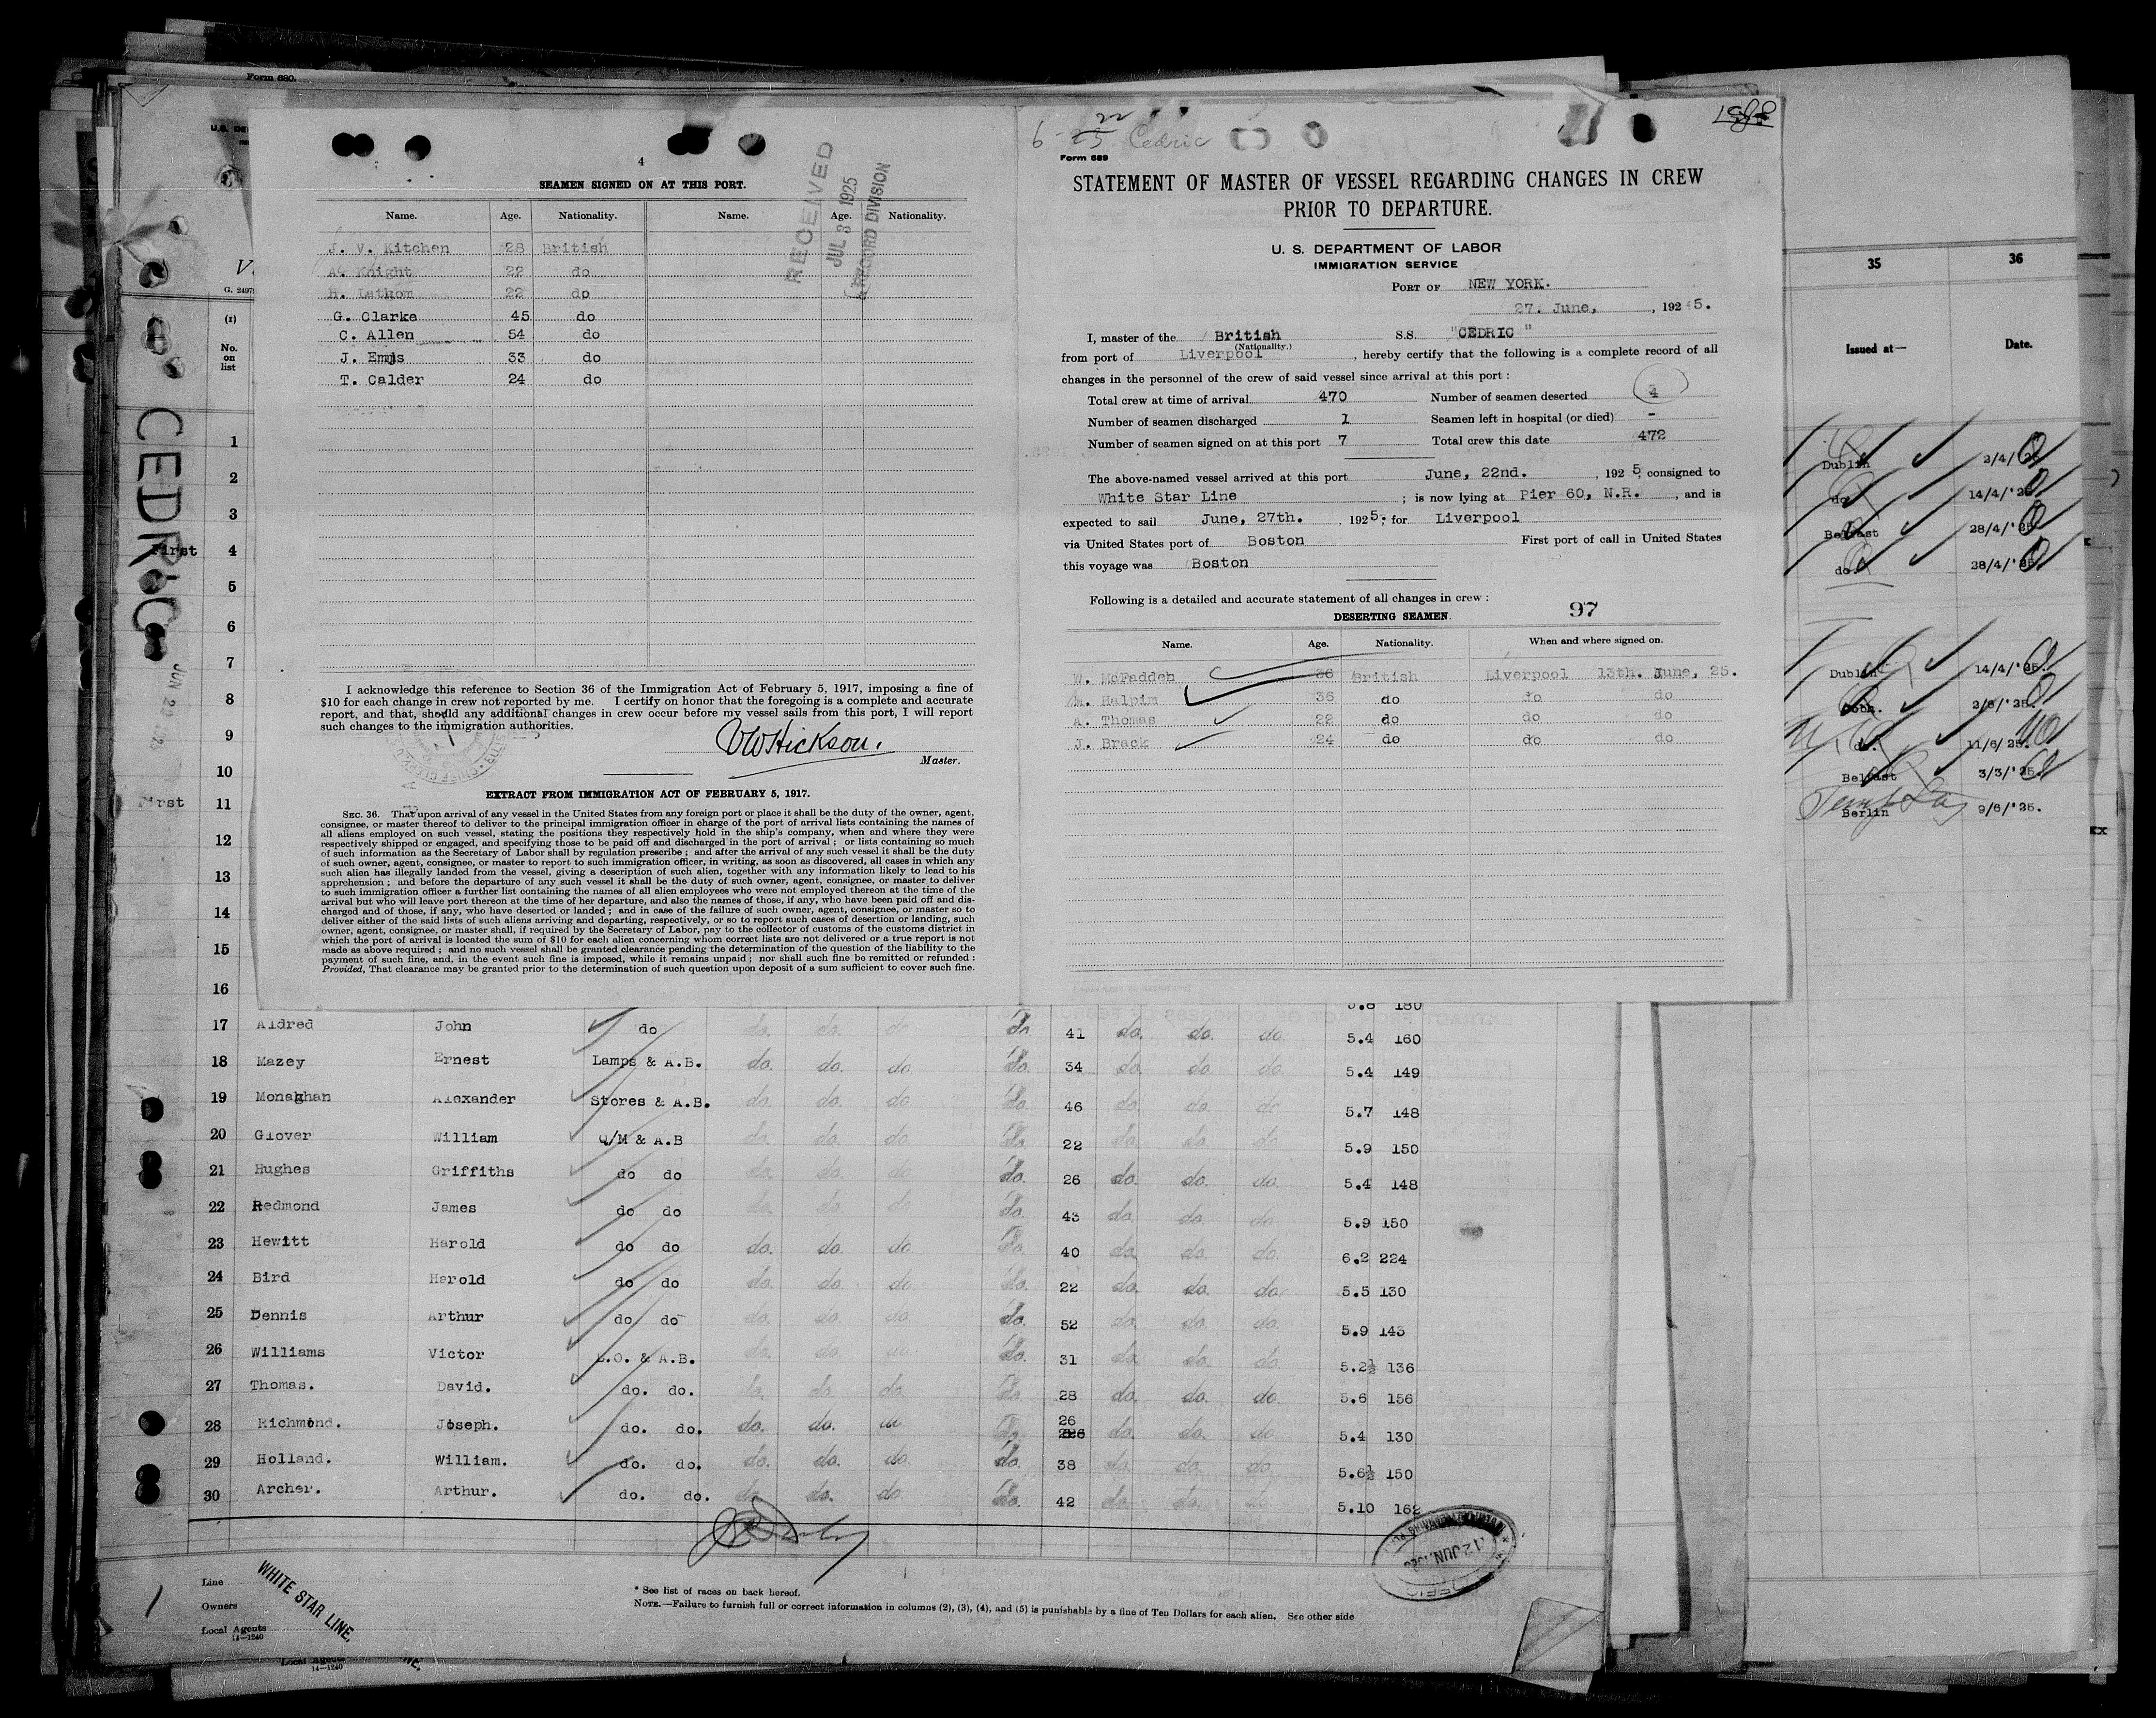 Form 680.
4
SEAMEN SIGNED ON AT THIS PORT.
Name. Age. Nationality. Name. Age. Nationality.
J. V. Kitchen 28 British
A. Knight 22 do
H. Lathom 22 do
G. Clarke 45 do
C. Allen 54 do
J. 33 do
T. Calder 24 do
RECEIVED
JUL 3 1925
RECORD DIVISION
I acknowledge this reference to Section 36 of the Immigration Act of February 5, 1917, imposing a fine of
$10 for each change in crew not reported by me. I certify on honor that the foregoing is a complete and accurate
report, and that, should any additional changes in crew occur before my vessel sails from this port, I will report
such changes to the immigration authorities.
VW Hickson.
Master.
EXTRACT FROM IMMIGRATION ACT OF FEBRUARY 5, 1917.
SEC. 36. That upon arrival of any vessel in the United States from any foreign port or place it shall be the duty of the owner, agent,
consignee, or master thereof to deliver to the principal immigration officer in charge of the port of arrival lists containing the names of
all aliens employed on such vessel, stating the positions they respectively hold in the ship's company, when and where they were
respectively shipped or engaged, and specifying those to be paid off and discharged in the port of arrival; or lists containing so much
of such information as the Secretary of Labor shall by regulation prescribe; and after the arrival of any such vessel it shall be the duty
of such owner, agent, consignee, or master to report to such immigration officer, in writing, as soon as discovered, all cases in which any
such alien has illegally landed from the vessel, giving a description of such alien, together with any information likely to lead to his
apprehension; and before the departure of any such vessel it shall be the duty of such owner, agent, consignee, or master to deliver
to such immigration officer a further list containing the names of all alien employees who were not employed thereon at the time of the
arrival but who will leave port thereon at the time of her departure, and also the names of those, if any, who have been paid off and dis-
charged and of those, if any, who have deserted or landed; and in case of the failure of such owner, agent, consignee, or master so to
deliver either of the said lists of such aliens arriving and departing, respectively, or so to report such cases of desertion or landing, such
owner, agent, consignee, or master shall, if required by the Secretary of Labor, pay to the collector of customs of the customs district in
which the port of arrival is located the sum of $10 for each alien concerning whom correct lists are not delivered or a true report is not
made as above required; and no such vessel shall be granted clearance pending the determination of the question of the liability to the
payment of such fine, and, in the event such fine is imposed, while it remains unpaid; nor shall such fine be remitted or refunded:
Provided, That clearance may be granted prior to the determination of such question upon deposit of a sum sufficient to cover such fine.
6- 22 Cedric
Form 689
STATEMENT OF MASTER OF VESSEL REGARDING CHANGES IN CREW
PRIOR TO DEPARTURE.
U. S. DEPARTMENT OF LABOR
IMMIGRATION SERVICE
PORT OF NEW YORK.
27. June, , 192 5.
I, master of the British S.S. "CEDRIC"
(Nationality.)
from port of Liverpool , hereby certify that the following is a complete record of all
changes in the personnel of the crew of said vessel since arrival at this port:
Total crew at time of arrival 470 Number of seamen deserted 4
Number of seamen discharged 1 Seamen left in hospital (or died) -
Number of seamen signed on at this port 7 Total crew this date 472
The above-named vessel arrived at this port June, 22nd. , 192 5, consigned to
White Star Line ; is now lying at Pier 60, N.R. , and is
expected to sail June, 27th. , 1925; for Liverpool
via United States port of Boston First port of call in United States
this voyage was Boston
Following is a detailed and accurate statement of all changes in crew:
97
DESERTING SEAMEN.
Name. Age. Nationality. When and where signed on.
W. McFadden 36 British Liverpool 13th. June, 25.
M. Halpim 36 do do do
A. Thomas 22 do do do
J. Brack 24 do do do
35 36
Issued at— Date.
Dublin 2/4/
do 14/4/
Belfast 28/4/
do 28/4/'
Dublin 14/4/'25.
Cobh.
do 11/6/
Belfast 3/3/'
Berlin 9/6/'25.
CEDRIC
JUN 22
(1)
No.
on
list
1
2
3
First 4
5
6
7
8
9
10
First 11
12
13
14
15
16 180
17 Aldred John do do. do. do do. 41 do. do. do 5.4 160
18 Mazey Ernest Lamps & A.B. do. do. do do. 34 do. do. do 5.4 149
19 Monaghan Alexander Stores & A.B. do. do. do do. 46 do. do. do 5.7 148
20 Glover William Q/M & A.B do. do. do do. 22 do. do. do 5.9 150
21 Hughes Griffiths do do do. do. do do. 26 do. do. do 5.4 148
22 Redmond James do do do. do. do do. 43 do. do. do 5.9 150
23 Hewitt Harold do do do. do. do do. 40 do. do. do 6.2 224
24 Bird Harold do do do. do. do do. 22 do. do. do 5.5 130
25 Dennis Arthur do do do. do. do do. 52 do. do. do 5.9 143
26 Williams Victor L.O. & A.B. do. do. do do. 31 do. do. do 5.2½ 136
27 Thomas. David. do. do. do. do. do do. 28 do. do. do 5.6 156
28 Richmond. Joseph. do. do. do. do. do do. 26 do. do. do 5.4 130
29 Holland. William. do. do. do. do. do do. 38 do. do. do 5.6½ 150
30 Archer. Arthur. do. do. do. do. do do. 42 do. do. do 5.10 162
12 JUN.
Line WHITE STAR LINE.
Owners
Local Agents
14—1240
* See list of races on back hereof.
NOTE.—Failure to furnish full or correct information in columns (2), (3), (4), and (5) is punishable by a fine of Ten Dollars for each alien. See other side
Local Agents
14—1240